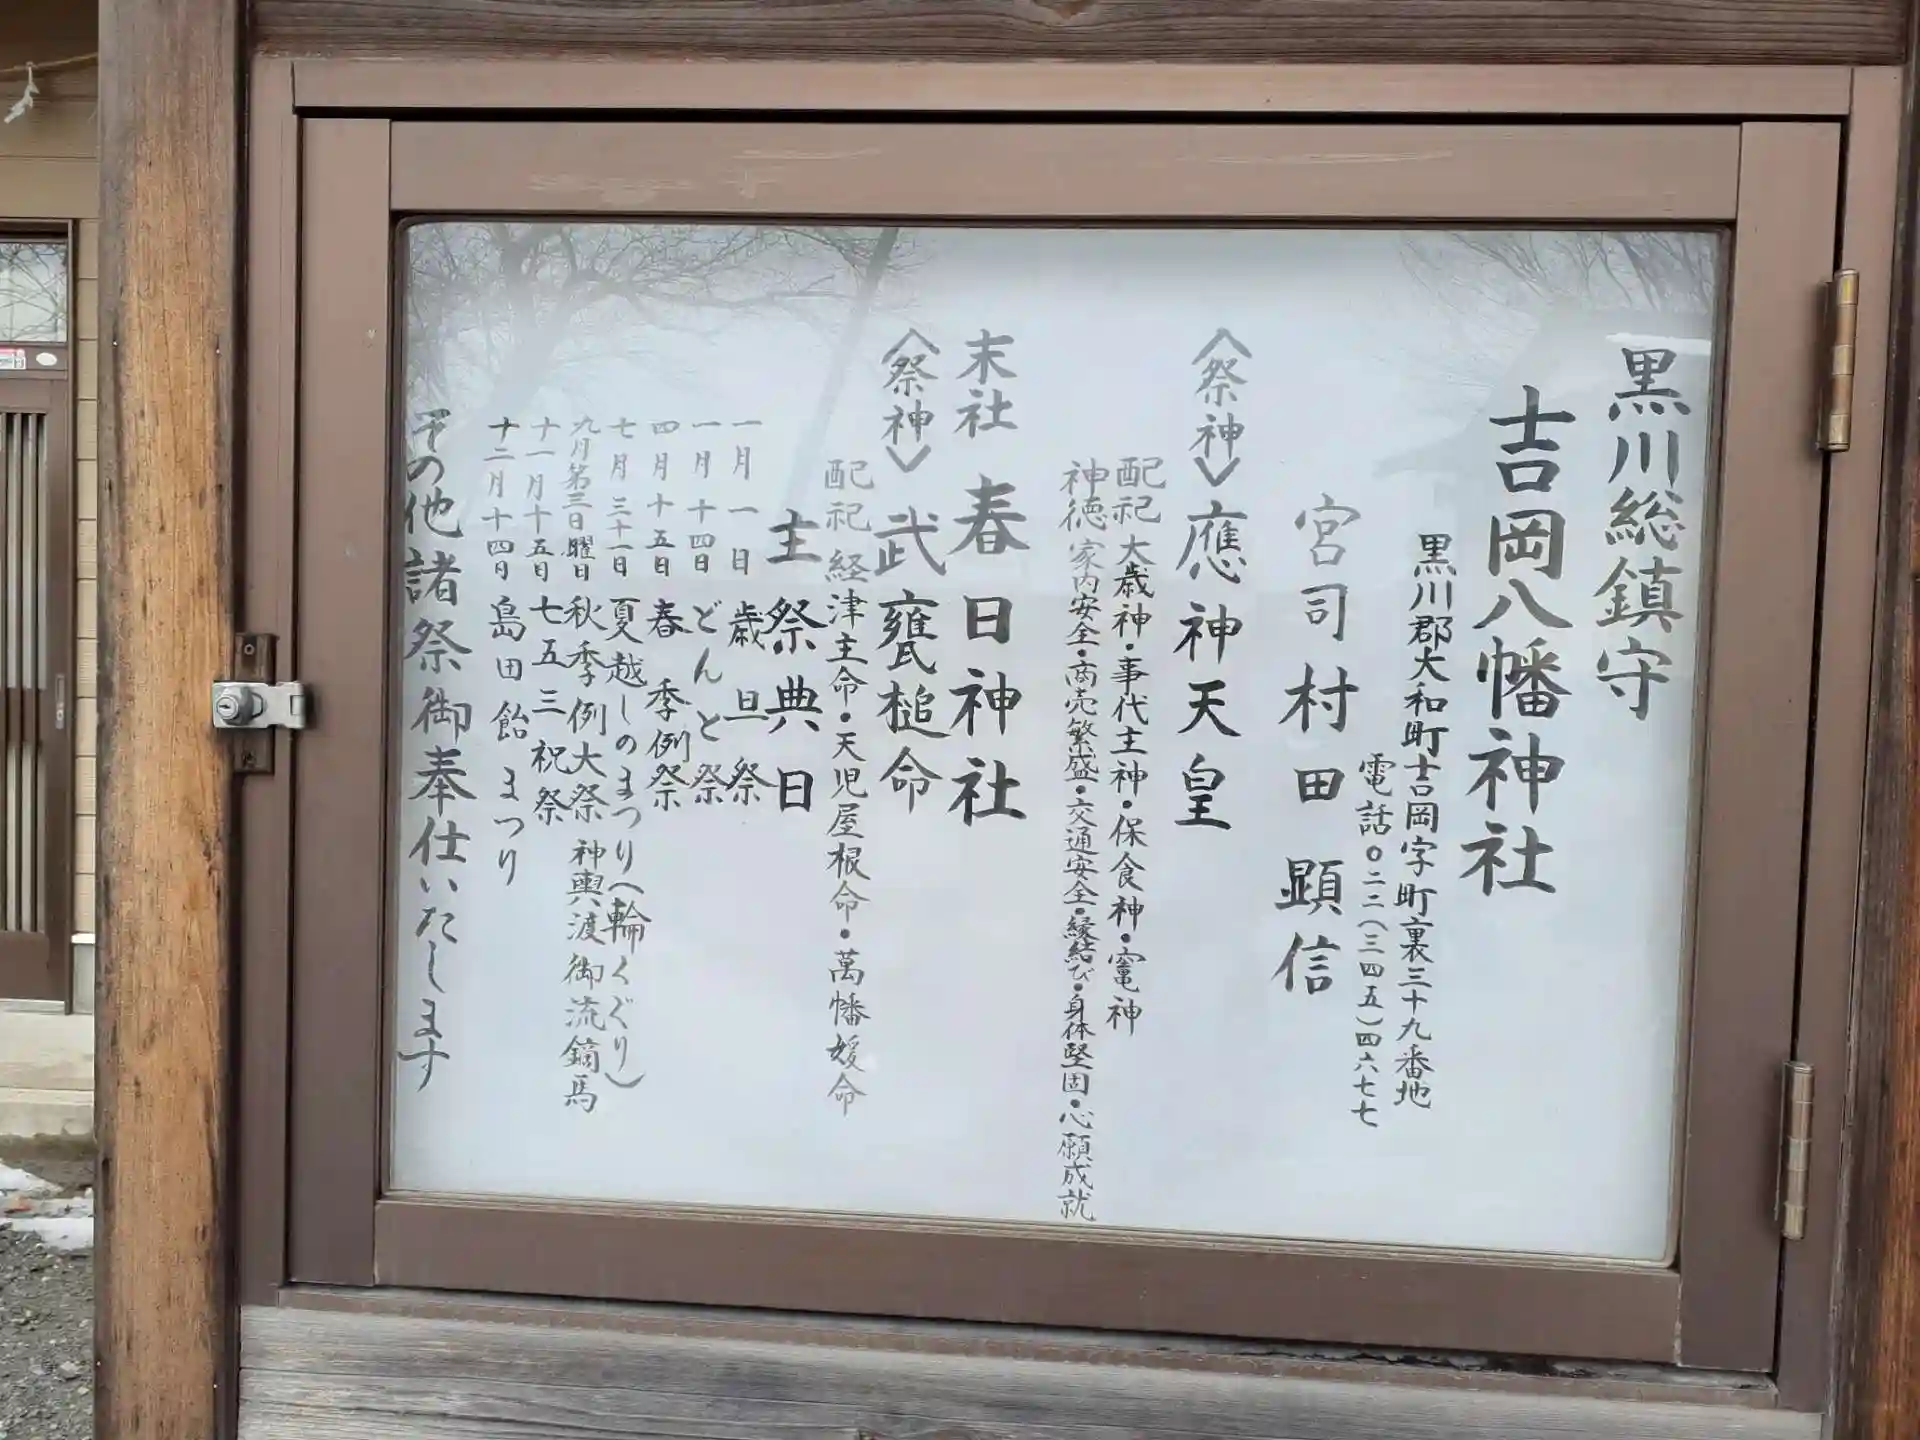 黒川総鎮守
吉岡八幡神社
黒川郡大和町吉岡字町裏三十九番地
電話〇二二(三四五)四六七七
宮司 村田 顕信
〈祭神〉應神天皇
配祀 大歳神・事代主神・保食神・竈神
神徳 家内安全・商売繁盛・交通安全・縁結び・身体堅固・心願成就
末社 春日神社
〈祭神〉武甕槌命
配祀 経津主命・天児屋根命・萬幡媛命
主祭典日
一月一日 歳旦祭
一月十四日 どんと祭
四月十五日 春季例祭
七月三十一日 夏越しのまつり(輪くぐり)
九月第三日曜日 秋季例大祭 神輿渡御流鏑馬
十一月十五日 七五三祝祭
十二月十四日 島田飴まつり
その他諸祭御奉仕いたします